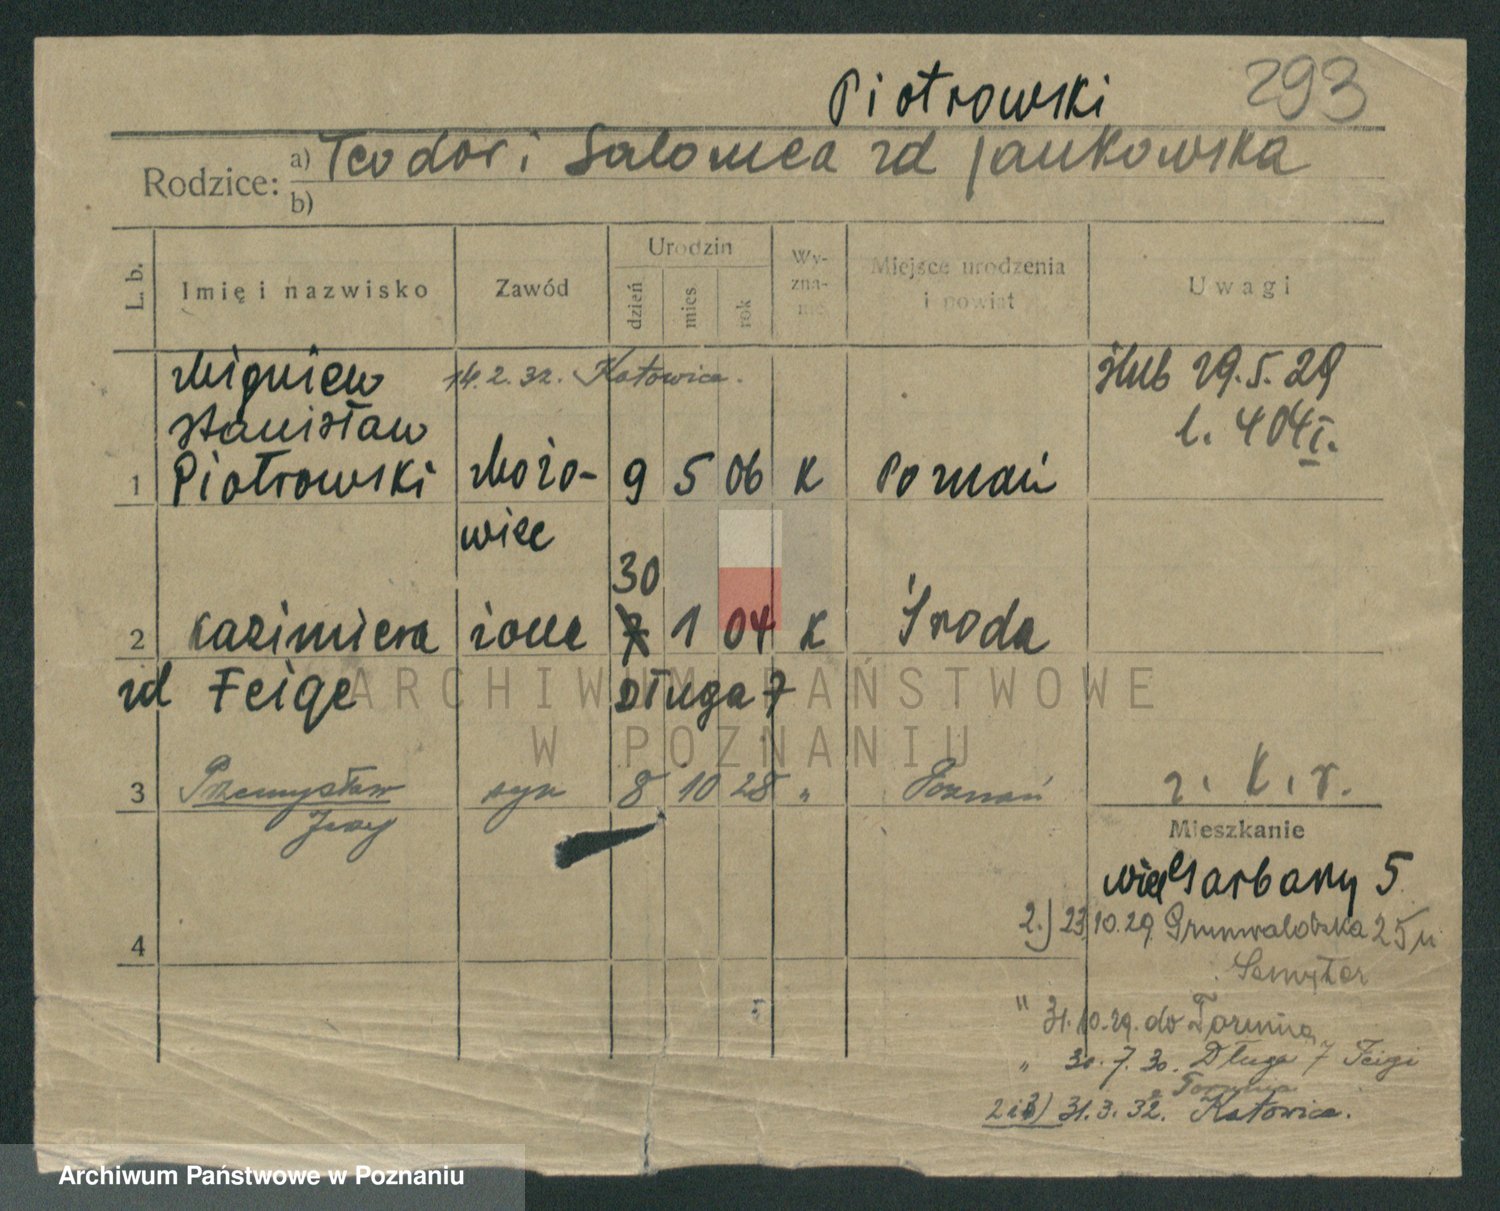 Piotrowski 293
Rodzice: a) Teodor i Salomea zd Jankowska
b)
L. b. Imię i nazwisko Zawód Urodzin dzień mies. rok Wyznanie Miejsce urodzenia i powiat Uwagi
Zbigniew 14.2.32. Katowice. ślub 29.5.29
Stanisław l. 404 I.
1 Piotrowski zbożo- 9 5 06 K Poznań
wiec
30
2 Kazimiera żona 7 1 04 K Środa
zd Feige Długa 7
ARCHIWUM PAŃSTWOWE
W POZNANIU
3 Przemysław syn 8 10 28 " Poznań r. k. r.
Jerzy
Mieszkanie
Wiel Garbary 5
4
2.) 23.10.29 Grunwaldzka 25 u
" 31.10.29. do Torunia
" 30.7.30. Długa 7 Feigi
z Torunia
2 i 3) 31.3.32. Katowice.
Archiwum Państwowe w Poznaniu